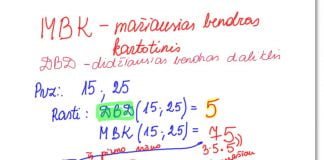 MBK - mažiausias bendras
kartotinis
DBD - didžiausias bendras daliklis
Pvz: 15 ; 25
Rasti: DBD (15; 25) = 5
MBK (15; 25) = 75
3·5·5
iš pirmo